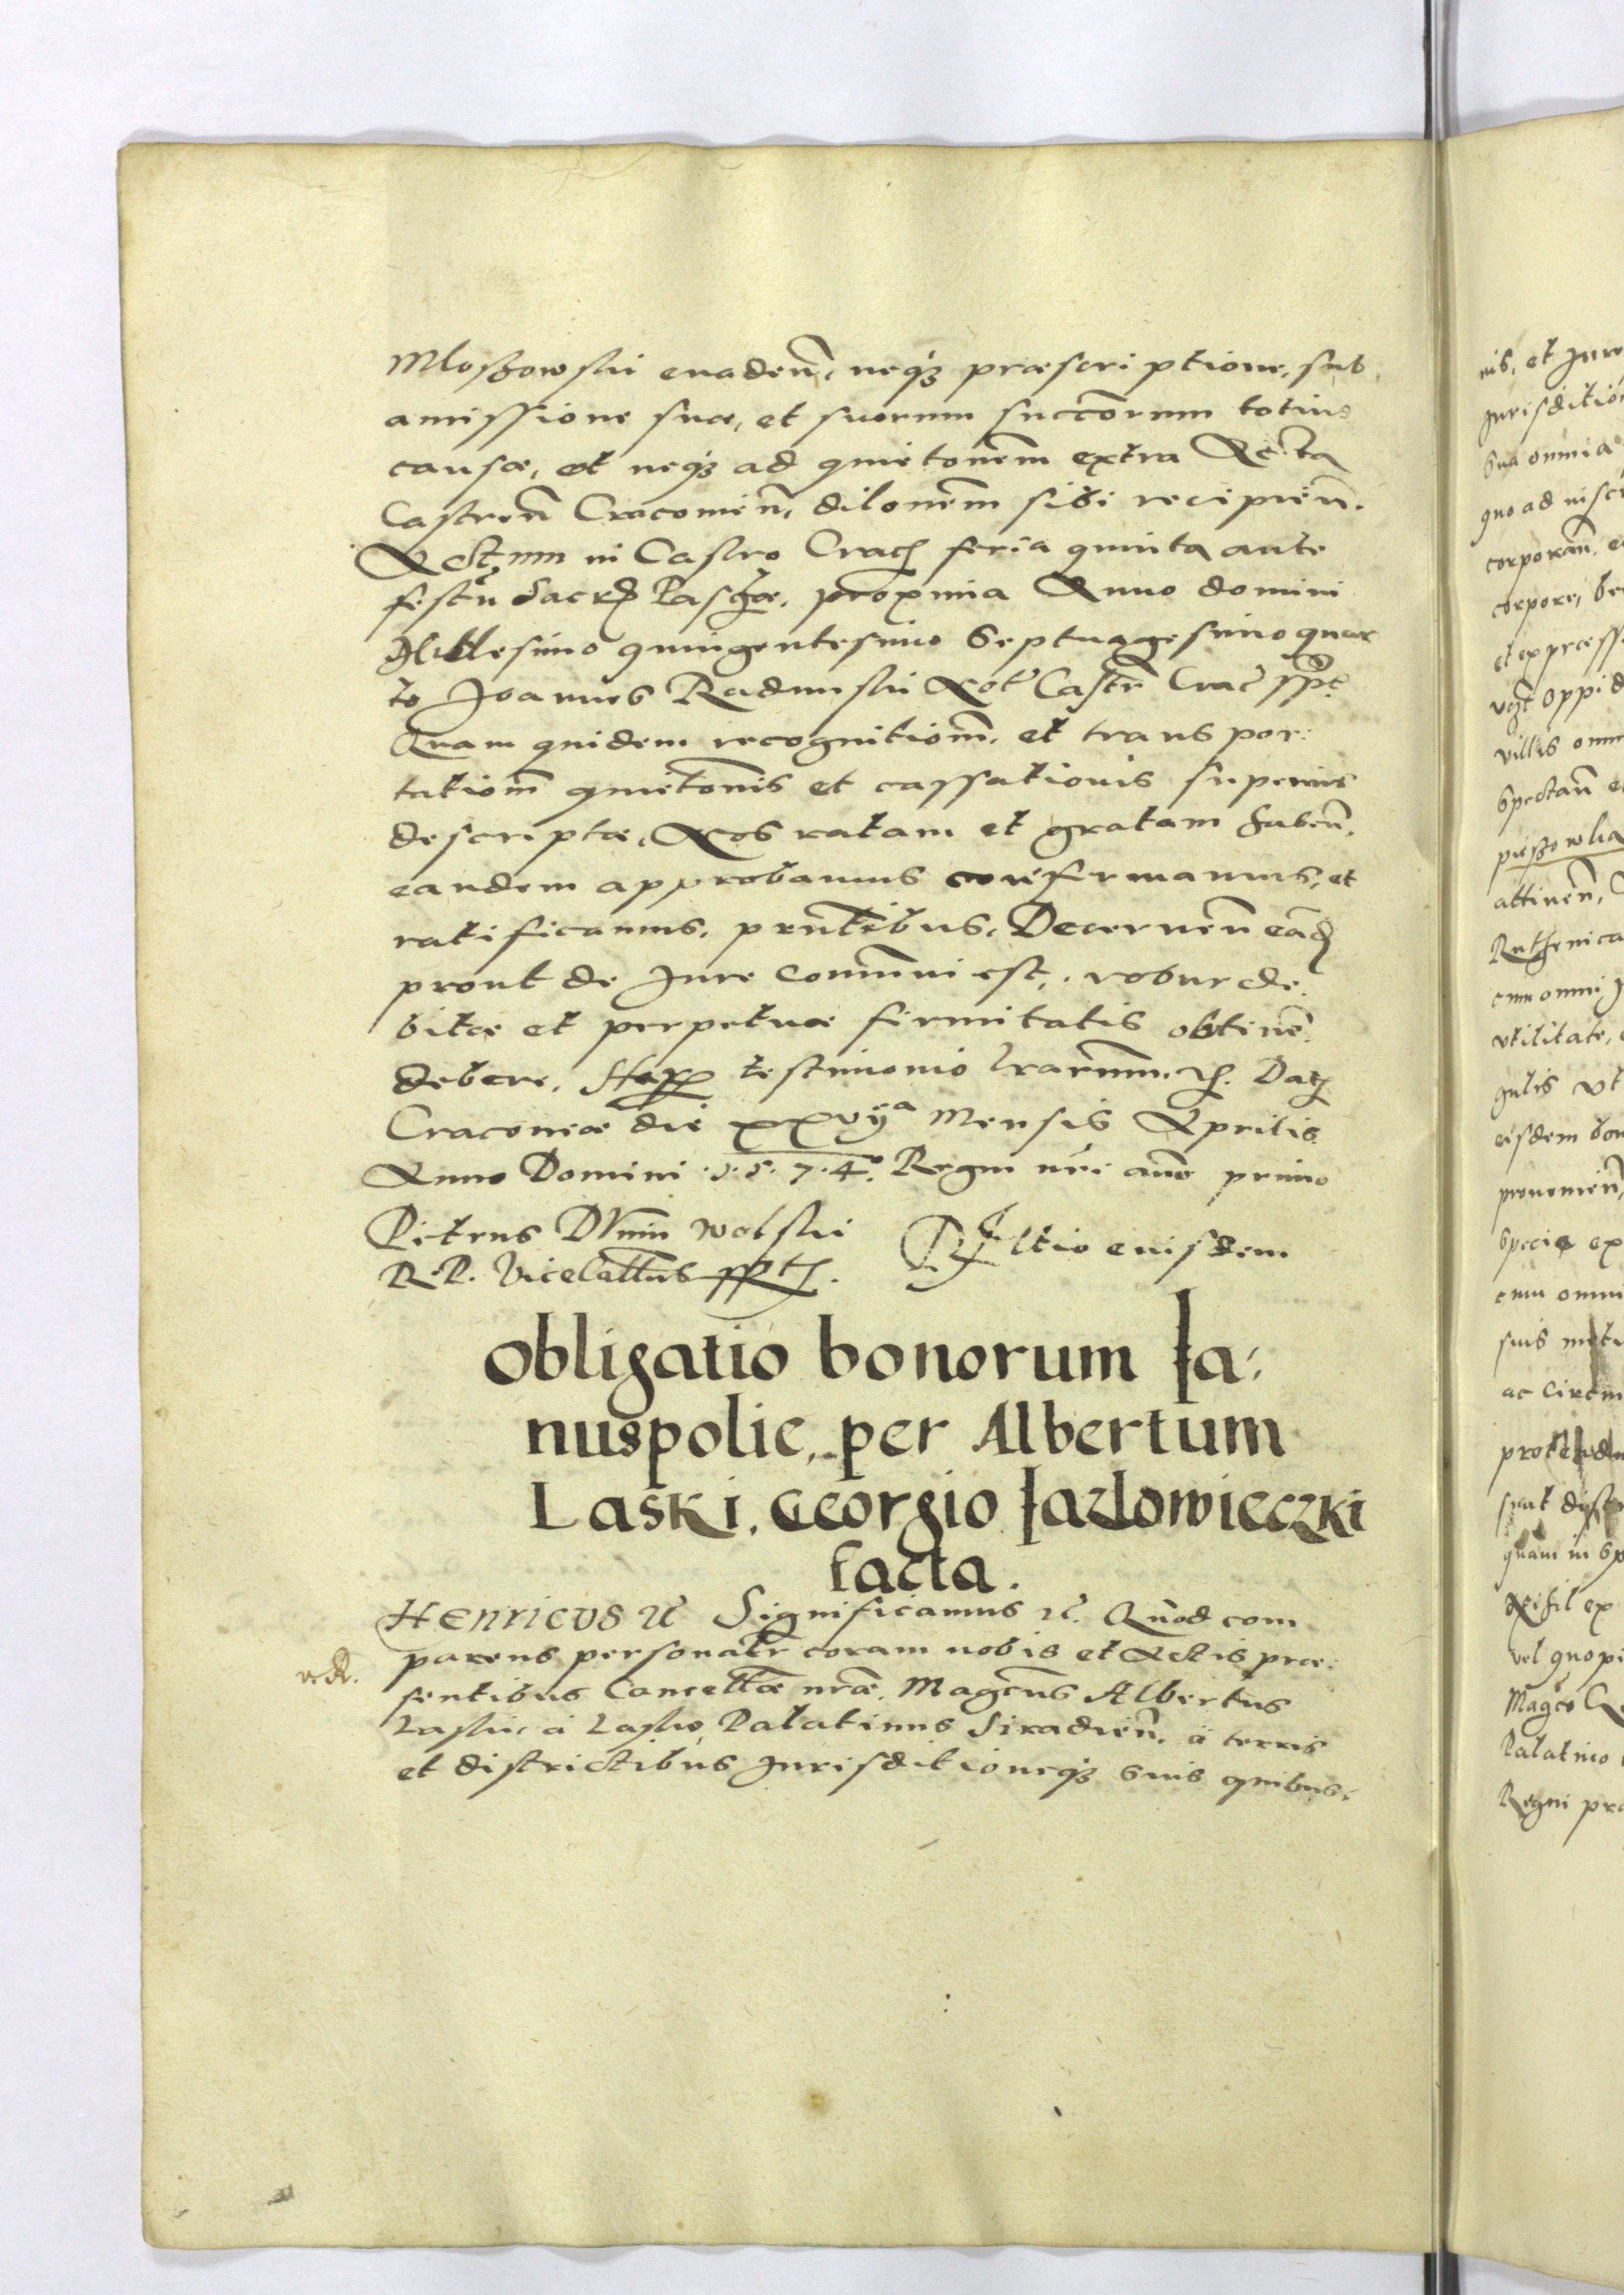 Mloszowski evaden, neqз præscriptione, sub
amissione suæ, et suorum succorum totius
causæ, et neqз ad quietonem extra Acta
Castren Cracovien, dilonem sibi recipien.
Actum in Castro Crac feria quinta ante
festũ Sacr Paschæ, proxima Anno domini
Millesimo quingentesimo Septuagesimo quar
to Joannes Radunski Not Castr Crac sspt
Quam quidem recognitiom, et transpor:
tatiom quietonis et cassationis superius
descriptæ, Nos ratam et gratam haben,
eandem approbamus confirmamus, et
ratificamus, pntibus, Decernen eand
prout de Jure Comuni est, robur de:
bitæ et perpetuæ firmitatis obtinē:
debere, Harꝫ testimonio lrarum. etc. Dat
Cracoviæ die xxvijª Mensis Aprilis
Anno Domini .1.5.7.4. Regni nri anno primo
Petrus Dunin Wolski
R. P. Vicecallrius sspt.
Rltio eiusdem
Obligatio bonorum Ja:
nuspolie, per Albertum
Laski, Georgio Jazlowieczki
facta.
Henricus etc Significamus etc. Quod com
parens personalr coram nobis et Actis præ:
sentibus Cancellæ nræ, Magcus Albertus
Laski, a Lasko, Palatinus Siradien, a terris
et districtibus Jurisditioneqз suis quibus:
nis, et Jure
Jurisditio
sua omnia
quo ad viscer
corporan, e
corpore, be
et ex præss
vgt oppid
villis omn
spectan e
attinen,
Ruthenica
cum omni J
utilitate,
gulis ut
eisdem bon
provenien,
specie ex
cum omni
suis met
ac Circm
protend
sunt dist
quam in sp
Nihil ex
vel quopi
Magco
Palatino
Regni pra